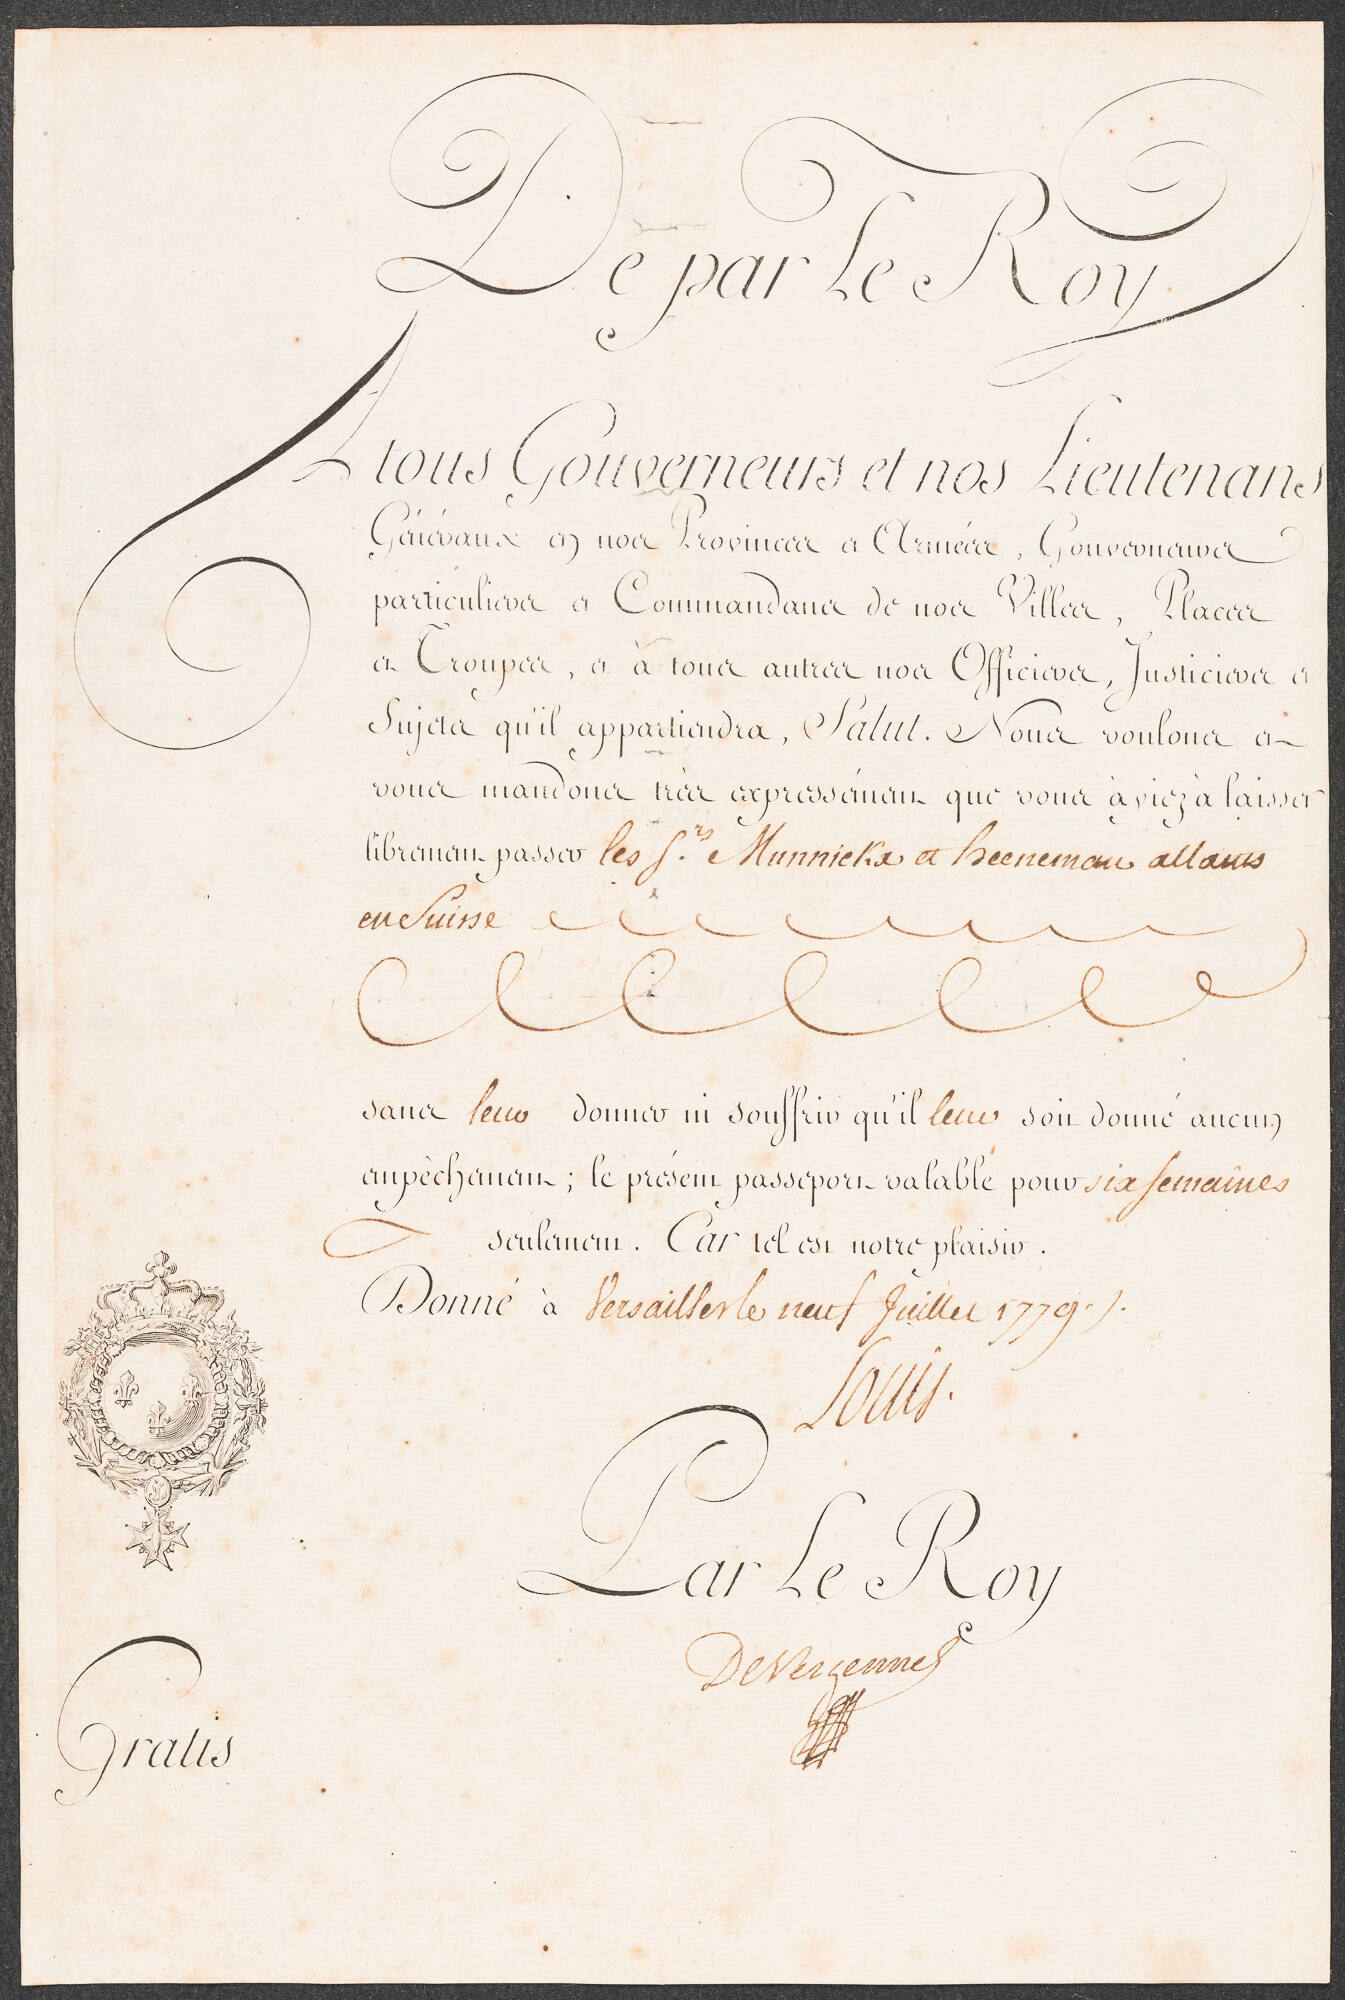 De par Le Roy
A tous Gouverneurs et nos Lieutenans
Généraux en nos Provinces et Armées, Gouverneurs
particuliers et Commandans de nos Villes, Places
et Troupes, et à tous autres nos Officiers, Justiciers et
Sujets qu'il appartiendra, Salut. Nous voulons et
vous mandons très expressément que vous àyiez à laisser
librement passer les Srs. Munnicks et heeneman allans
en Suisse
sans leur donner ni souffrir qu'il leur soit donné aucun
empêchement ; le présent passeport valable pour six semaines
seulement. Car tel est notre plaisir.
Donné à Versailles le neuf Juillet 1779.
Louis.
Par Le Roy
De Vergennes
Gratis